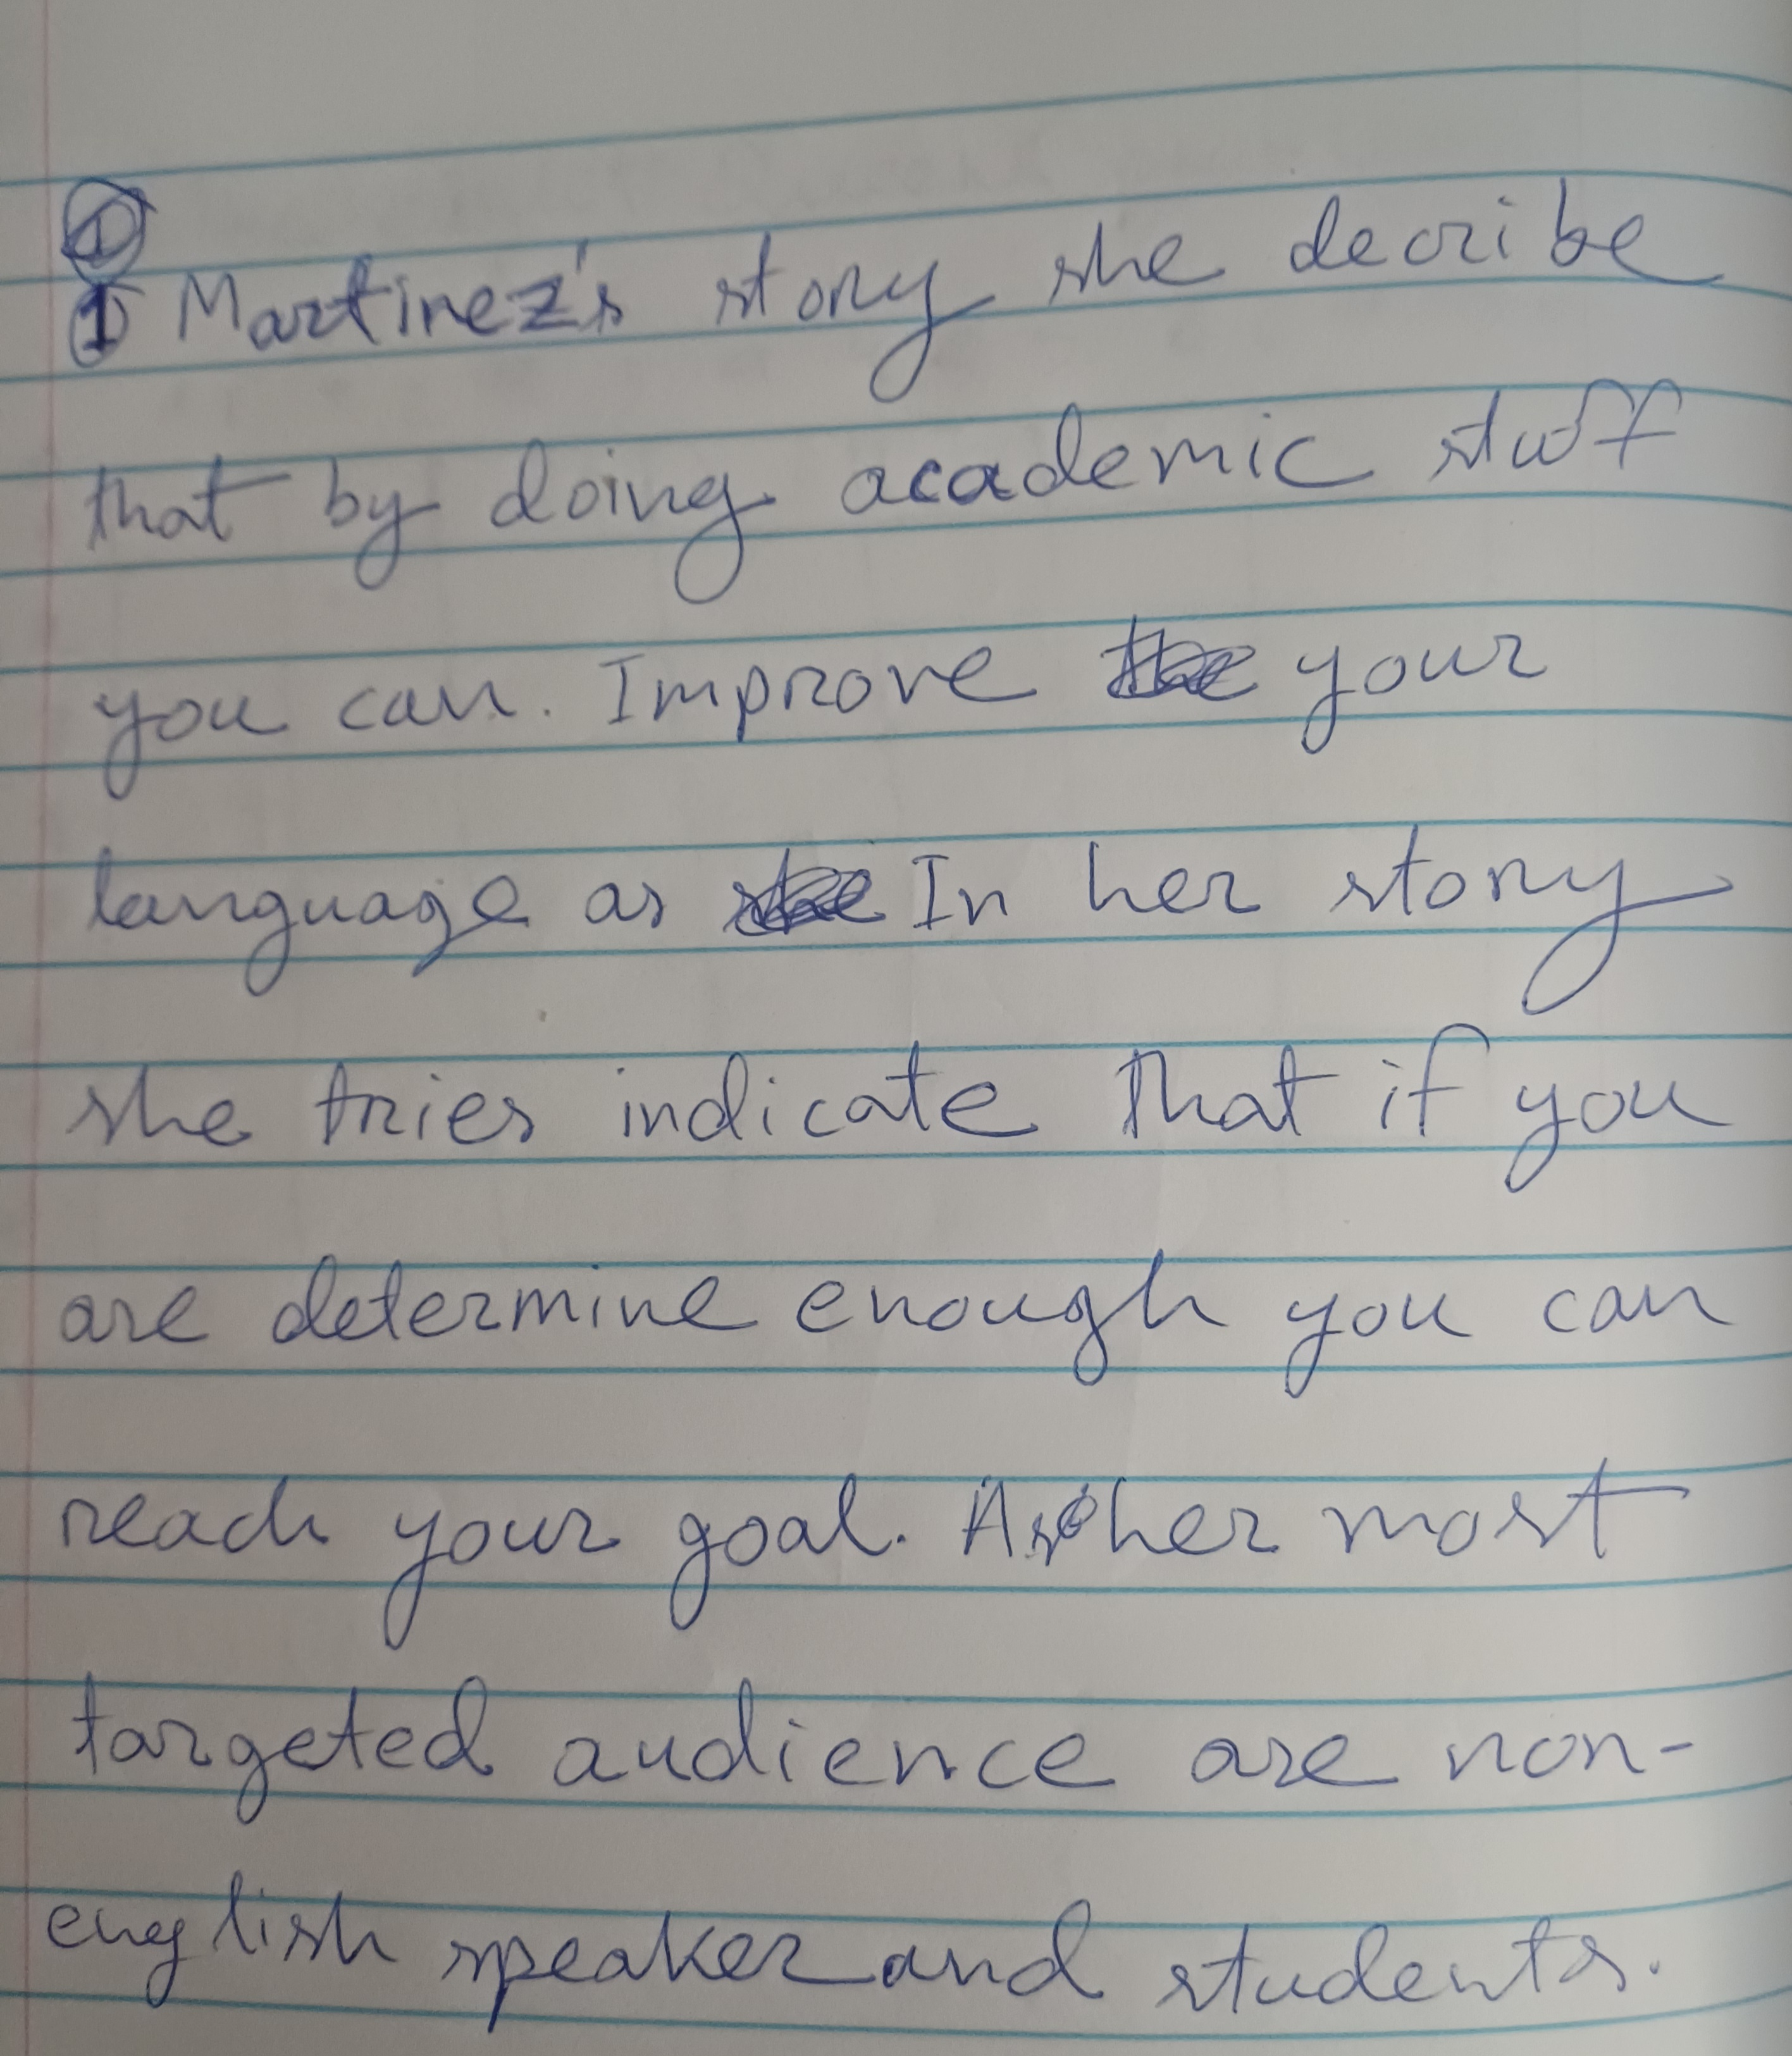 ① Martinez's story she decribe
that by doing academic stuff
you can. Improve your
language as In her story
she tries indicate that if you
are determine enough you can
reach your goal. As her most
targeted audience are non-
english speaker and students.